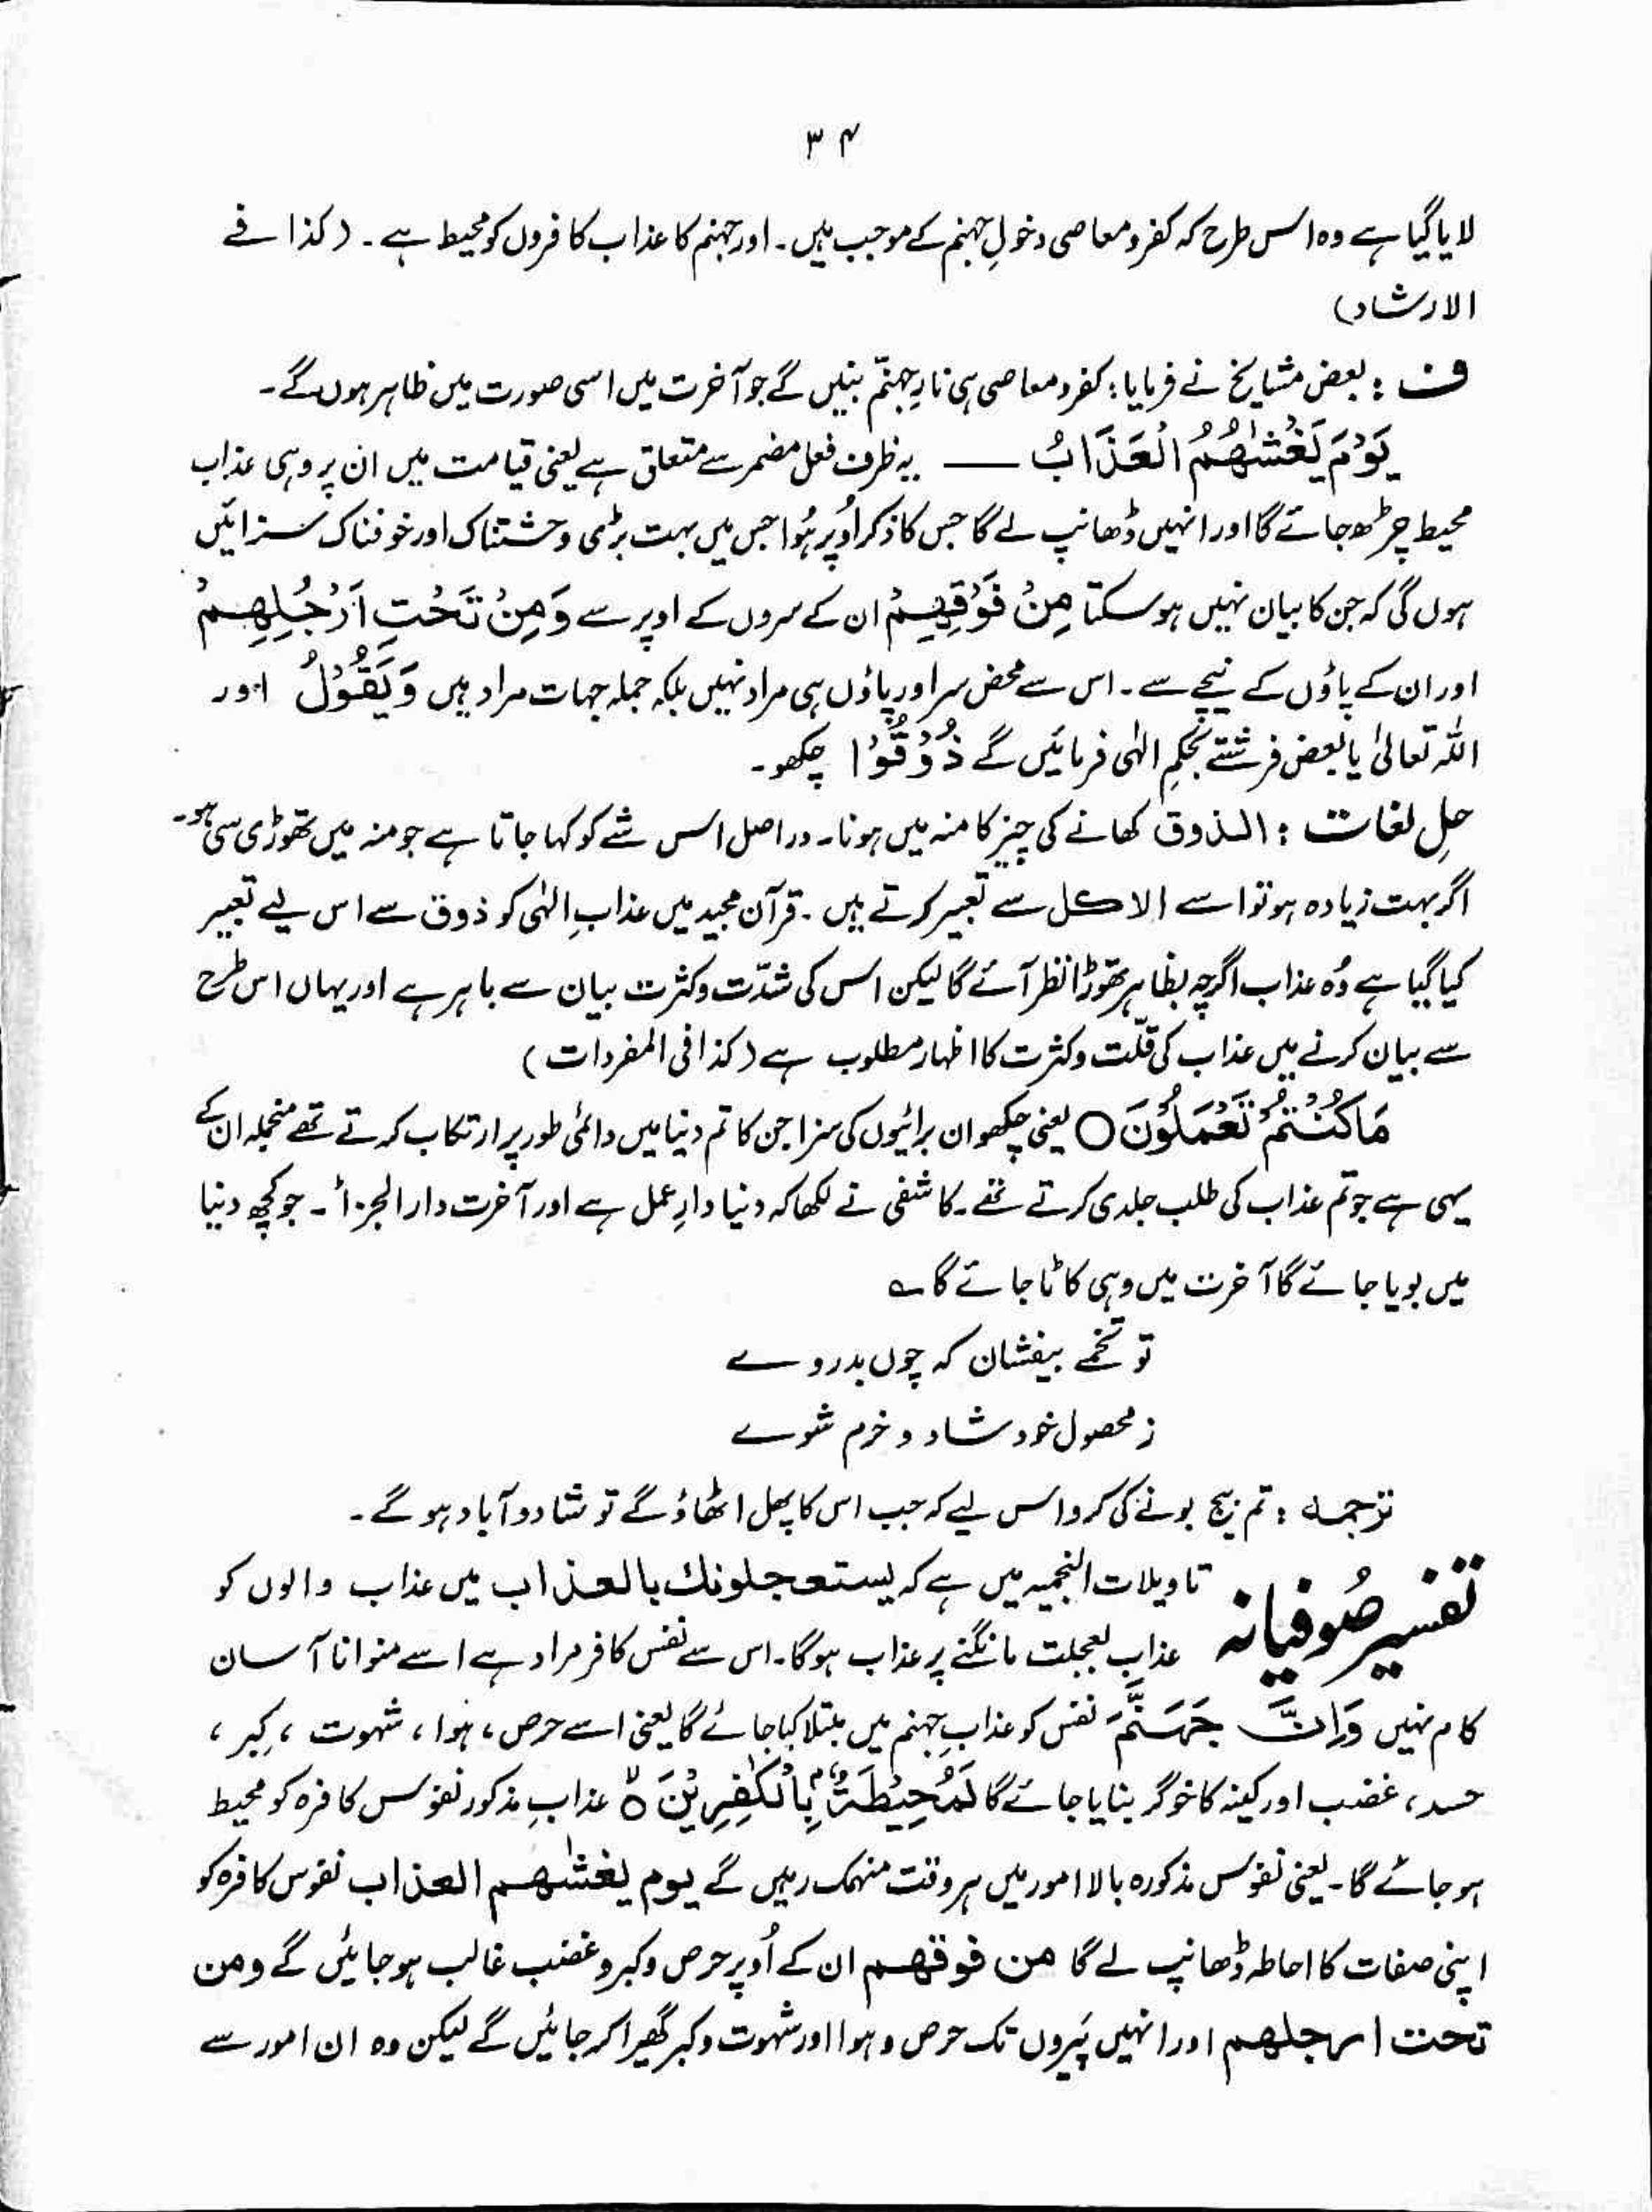 ۳۴
لایا گیا ہے وہ اس طرح کہ کفر و معاصی دخولِ جہنم کے موجب ہیں۔ اور جہنم کا عذاب کافروں کو محیط ہے۔ (کذا فے
الارشاد)
ف : بعض مشایخ نے فرمایا : کفر و معاصی ہی نارِ جہنّم بنیں گے جو آخرت میں اسی صورت میں ظاہر ہوں گے۔
يَوْمَ يَغْشٰهُمُ الْعَذَابُ —— یہ ظرف فعل مضمر سے متعلق ہے یعنی قیامت میں ان پر وہی عذاب
محیط چڑھ جائے گا اور انہیں ڈھانپ لے گا جس کا ذکر اُوپر ہُوا جس میں بہت بڑی وحشتناک اور خوفناک سزائیں
ہوں گی کہ جن کا بیان نہیں ہو سکتا مِنْ فَوْقِهِمْ ان کے سروں کے اوپر سے وَمِنْ تَحْتِ اَرْجُلِهِمْ
اور ان کے پاؤں کے نیچے سے۔ اس سے محض سر اور پاؤں ہی مراد نہیں بلکہ جملہ جہات مراد ہیں وَيَقُوْلُ اور
اللہ تعالیٰ یا بعض فرشتے بحکمِ الٰہی فرمائیں گے ذُوْقُوْا چکھو۔
حلِ لغات : الذوق کھانے کی چیز کا منہ میں ہونا۔ دراصل اس شے کو کہا جاتا ہے جو منہ میں تھوڑی سی ہو۔
اگر بہت زیادہ ہو تو اسے الاکل سے تعبیر کرتے ہیں۔ قرآن مجید میں عذابِ الٰہی کو ذوق سے اس لیے تعبیر
کیا گیا ہے وُہ عذاب اگرچہ بظاہر تھوڑا نظر آئے گا لیکن اس کی شدّت و کثرت بیان سے باہر ہے اور یہاں اس طرح
سے بیان کرنے میں عذاب کی قلّت و کثرت کا اظہار مطلوب ہے (کذا فی المفردات)
مَا كُنْتُمْ تَعْمَلُوْنَ ○ یعنی چکھو ان برائیوں کی سزا جن کا تم دنیا میں دائمی طور پر ارتکاب کرتے تھے منجملہ ان کے
یہی ہے جو تم عذاب کی طلب جلدی کرتے تھے۔ کاشفی نے لکھا کہ دنیا دارِ عمل ہے اور آخرت دار الجزاء۔ جو کچھ دنیا
میں بویا جائے گا آخرت میں وہی کاٹا جائے گا ؎
تو تخمے بیفشان کہ چوں بدروے
ز محصول خود شاد و خرم شوے
ترجمہ : تم بیج بونے کی کرو اس لیے کہ جب اس کا پھل اٹھاؤ گے تو شاد و آباد ہو گے۔
تفسیر صُوفیانہ تاویلات النجمیہ میں ہے کہ یستعجلونك بالعذاب میں عذاب والوں کو
عذاب بعجلت مانگنے پر عذاب ہوگا۔ اس سے نفس کافر مراد ہے اسے منوانا آسان
کام نہیں وَاِنَّ جَهَنَّمَ نفس کو عذابِ جہنم میں مبتلا کیا جائے گا یعنی اسے حرص ، ہَوا ، شہوت ، کِبر ،
حسد ، غضب اور کینہ کا خوگر بنایا جائے گا لَمُحِيْطَةٌۢ بِالْكٰفِرِيْنَ ۙ عذابِ مذکور نفوس کافرہ کو محیط
ہو جائے گا۔ یعنی نفوس مذکورہ بالا امور میں ہر وقت منہمک رہیں گے یوم یغشٰھم العذاب نفوس کافرہ کو
اپنی صفات کا احاطہ ڈھانپ لے گا من فوقھم ان کے اُوپر حرص و کبر و غضب غالب ہو جائیں گے و من
تحت ارجلھم اور انہیں پَیروں تک حرص و ہوا اور شہوت و کبر گھیرا کر جائیں گے لیکن وہ ان امور سے